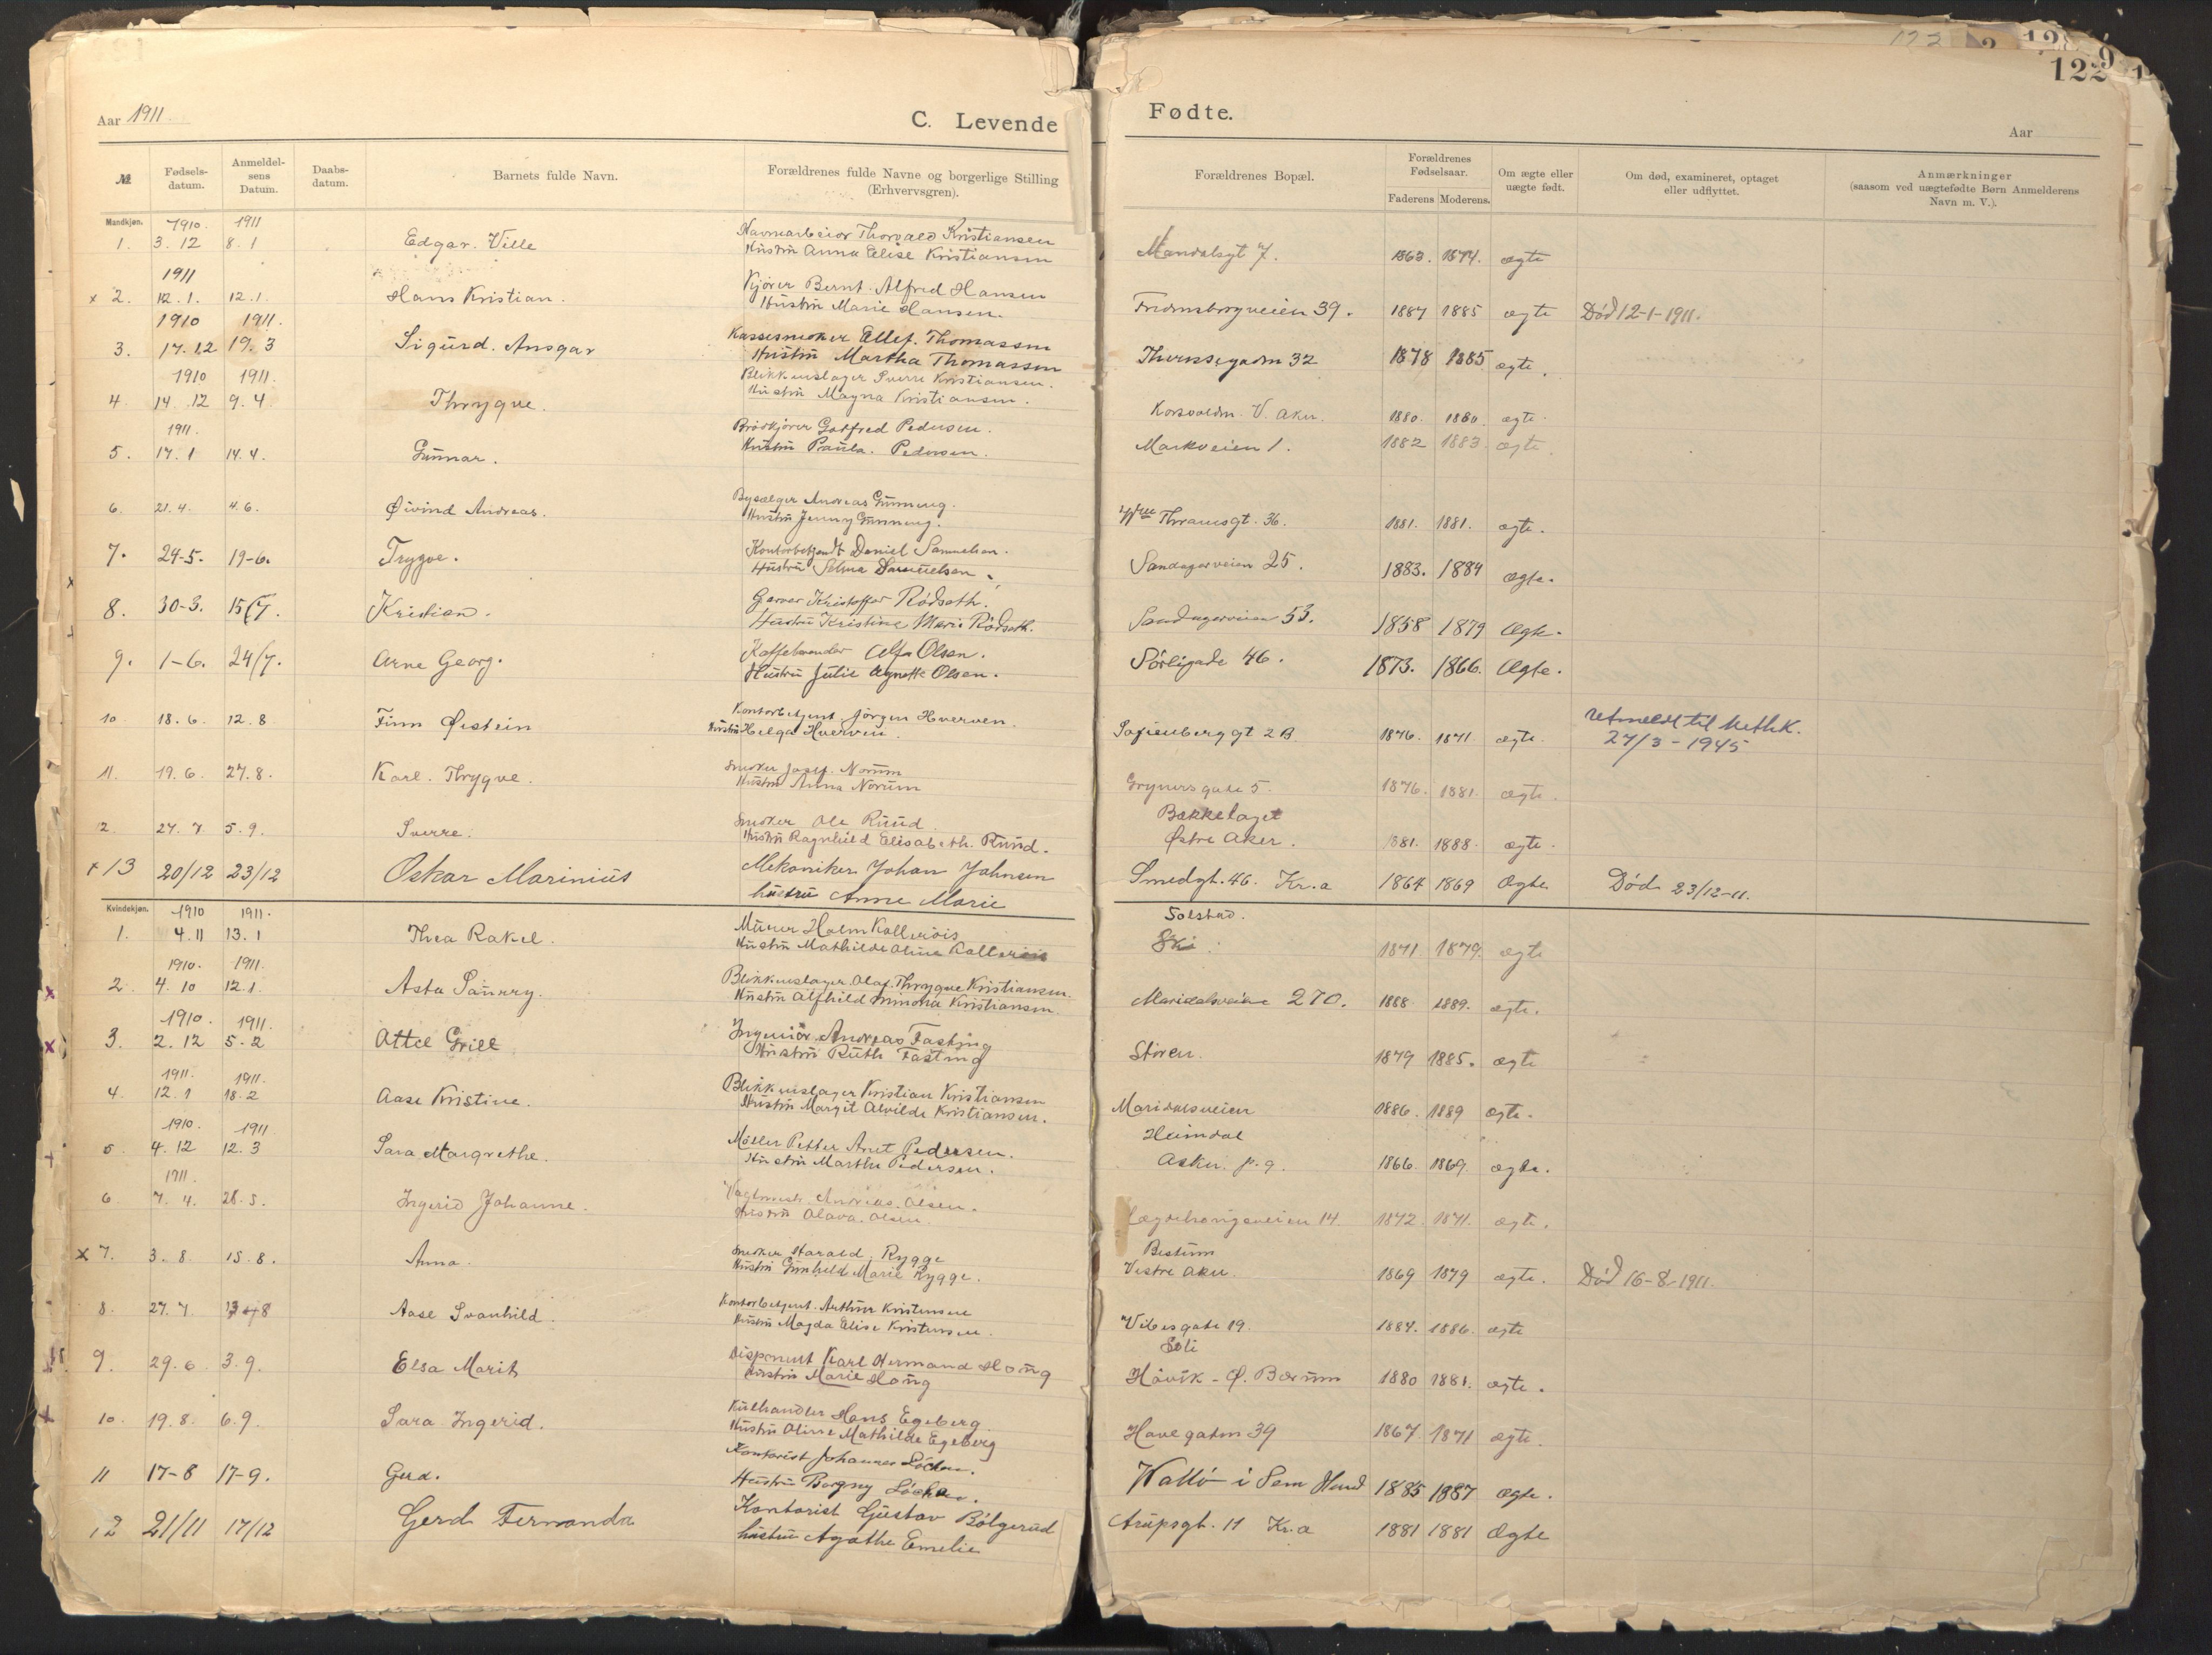 Aar 1911
C. Levende
Fødte.
Aar
122
№
Fødsels-datum.
Anmeldel-sens Datum.
Daabs-datum.
Barnets fulde Navn.
Forældrenes fulde Navne og borgerlige Stilling (Erhvervsgren).
Forældrenes Bopæl.
Forældrenes Fødselsaar.
Faderens Moderens.
Om ægte eller uægte født.
Om død, examineret, optaget eller udflyttet.
Anmærkninger (saasom ved uægtefødte Børn Anmelderens Navn m. V.).
Mandkjøn. 1910. 1911
1. 3. 12 8. 1 Edgar. Ville Havnearbeider Thorvald Kristiansen Mandalsgt 7. 1863. 1874. ægte
Hustru Anna Elise Kristiansen
1911
x 2. 12. 1. 12. 1. Hans Kristian. Kjører Bernt. Alfred Hansen Fredensborgveien 39. 1887 1885 ægte Død 12-1-1911.
Hustru Marie Hansen.
1910 1911.
3. 17. 12 19. 3 Sigurd. Ansgar Kassesneker Ellef. Thomassen 32 1878 1885 ægte.
Hustru Martha Thomassen
1910 1911.
4. 14. 12 9. 4. Thrygve. Blikkenslager Sverre Kristiansen. V. Aker. 1880. 1880. ægte.
Hustru Magna Kristiansen.
1911.
5. 17. 1 14. 4. Gunnar. Brødkjører Gotfred Pedersen. Markveien 1. 1882 1883. ægte.
Hustru Paula. Pedersen.
6. 21. 4. 4. 6. Øivind Andreas. Andreas Gunneng. Thranesgt. 36. 1881. 1881. ægte.
Hustru Jenny Gunneng.
7. 24-5. 19-6. Trygve. Kontorbetjendt Daniel Samuelsen. Sandagerveien 25. 1883. 1884 ægte.
Hustru Selma Samuelsen.
x
8. 30-3. 15/7. Kristian. Garver Kristoffer Rødseth. Sandagerveien 53. 1858 1879 Ægte.
Hustru Kristine Marie Rødseth.
9. 1-6. 24/7. Arne Georg. Kaffebrender Alf Olsen. Sørligade 46. 1873. 1866. Ægte.
Hustru Julie Agnette Olsen.
10 18. 6. 12. 8 Finn Øistein Kontorbetjent Jørgen Hverven. Sofienberggt 2 B. 1876. 1871. ægte. Utmeldt til Methk.
Hustru Helga Hverven. 27/3 - 1945
11. 19. 6. 27. 8. Karl. Thrygve. Sneker Josef. Norum Grynersgate 5. 1876. 1881. ægte.
Hustru Anna Norum
Bækkelaget
2. 27. 7 5. 9. Sverre. Sneker Ole Ruud. Østre Aker. 1881. 1888. ægte.
Hustru Ragnhild Elisabeth. Ruud.
+ 13 20/12 23/12 Oskar Marinius Mekaniker Johan Johnsen Smedgt. 46. Kr.a 1864 1869 Ægte Død 23/12-11.
hustru Anne Marie
Kvindekjøn. 1910 1911. Solstad.
1. 4. 11 13. 1 Thea Rakel. Murer Holm Kallerøis Ski 1871 1879. ægte
Hustru Mathilde Oline
1910. 1911.
x 2. 4. 10 12. 1. Asta Blikkenslager Olaf. Thrygve Kristiansen. Maridalsveien 270. 1888 1889. ægte.
Hustru Alfhild Minona Kristiansen.
1910. 1911.
x 3. 2. 12 5. 2 Grill Ingeniør Andreas Fasting Støren. 1879 1885. ægte
Hustru Ruth Fasting
1911. 1911.
4. 12. 1 18. 2 Aase Kristine. Blikkenslager Kristian Kristiansen Maridalsveien 1886. 1889 ægte.
Hustru Margit Alvilde Kristiansen.
1910. 1911 Heimdal
+ 5 4. 12 12. 3 Sara Margrethe. Møller Petter Arnt Pedersen. Asker. p. g. 1866. 1869. ægte.
Hustru Martha Pedersen.
1911.
6 7. 4. 28. 5. Ingerid Johanne. Andreas. Olsen. 14 1872. 1871. ægte.
Hustru Olava. Olsen.
Bestum
x 7. 3. 8. 15. 8. Anna. Sneker Harald. Rygge Vestre Aker. 1869 1879 ægte. Død 16-8-1911.
Hustru Gunhild Marie Rygge.
8. 27. 7. Aase Svanhild. Kontorbetjent. Arthur Kristensen Vibesgate 19. 1884. 1886. ægte
Hustru Magda Elise Kristensen.
Soli
9. 29. 6 3. 9. Elsa Marit Disponent Karl Hermand Haug Håvik - Ø. Bærum 1880 1881. ægte.
Hustru Marie Haug
+ 10. 19. 8. 6. 9. Sara Ingerid. Kulhandler Hans Egeberg Havegaten 39 1867 1871 ægte.
Hustru Oline Mathilde Egeberg
11 17-8 17-9. Gerd. Kontorist Johannes Løchen. Walló i Sem 1885 1887 ægte.
Hustru Borgny Løchen.
12 21/11 17/12 Gerd Fernanda Kontorist Gustav Bölgerud Arupsgt. 11 Kr.a 1881 1881 Ægte
hustru Agathe Emelie